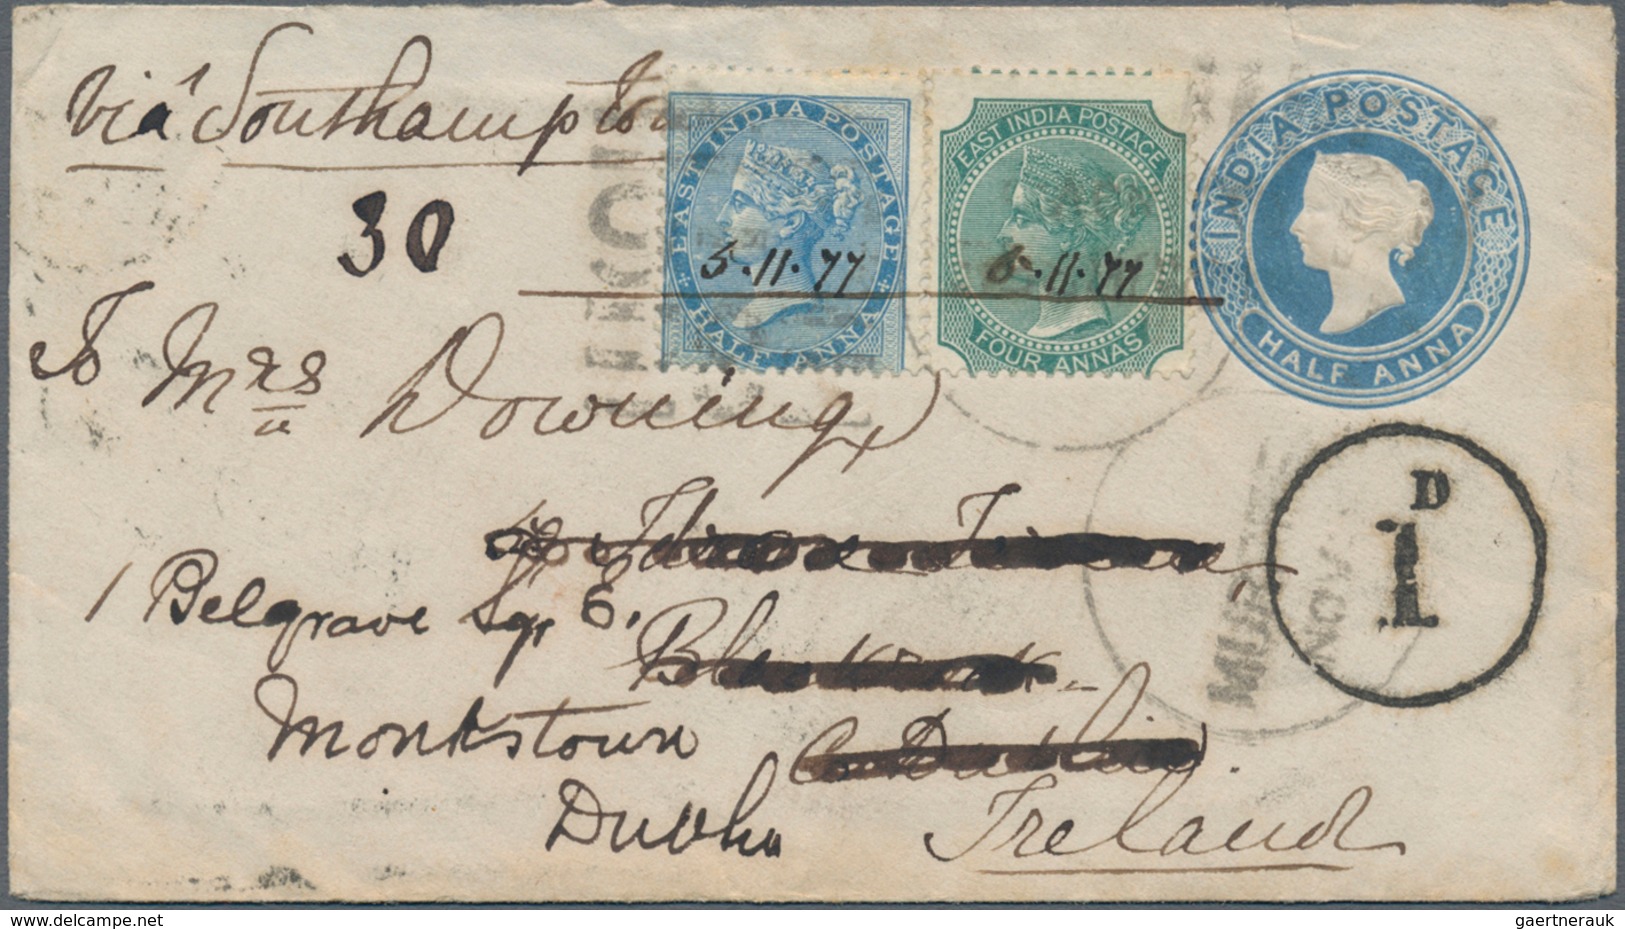 via Southampton
30
EAST INDIA POSTAGE
HALF ANNA
5.11.77
EAST INDIA POSTAGE
FOUR ANNAS
5.11.77
INDIA POSTAGE
HALF ANNA
To Mrs Downing
D
1
1 Belgrave Sqr E.
Blackrock
Monkstown
Co Dublin.
Dublin
Ireland
MURREE
NOV
www.delcampe.net
gaertnerauk